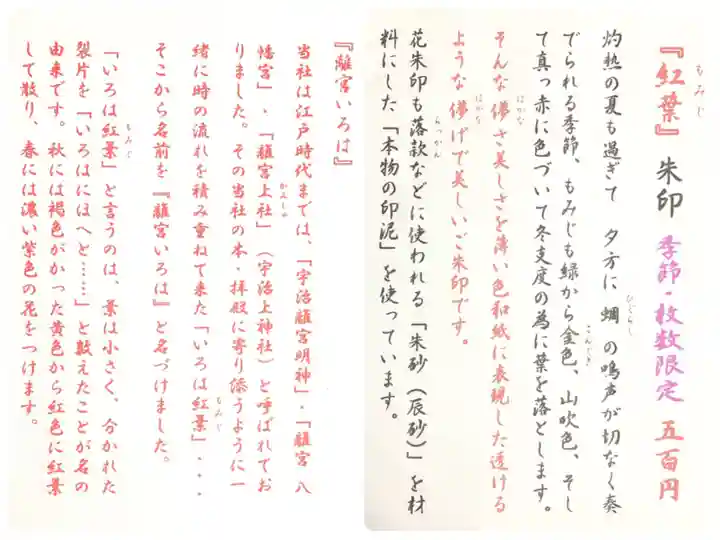 『紅葉』朱印 季節・枚数限定 五百円
灼熱の夏も過ぎて 夕方に 蜩 の鳴声が切なく奏
でられる季節、もみじも緑から金色、山吹色、そし
て真っ赤に色づいて冬支度の為に葉を落とします。
そんな儚さ美しさを薄い色和紙に表現した透ける
ような儚げで美しいご朱印です。
花朱印も落款などに使われる「朱砂（辰砂）」を材
料にした「本物の印泥」を使っています。
『離宮いろは』
当社は江戸時代までは、「宇治離宮明神」・「離宮八
幡宮」、「離宮上社」（宇治上神社）と呼ばれてお
りました。その当社の本・拝殿に寄り添うように一
緒に時の流れを積み重ねて来た「いろは紅葉」・・・
そこから名前を『離宮いろは』と名づけました。
「いろは紅葉」と言うのは、葉は小さく、分かれた
裂片を「いろはにほへと……」と数えたことが名の
由来です。秋には褐色がかった黄色から紅色に紅葉
して散り、春には濃い紫色の花をつけます。